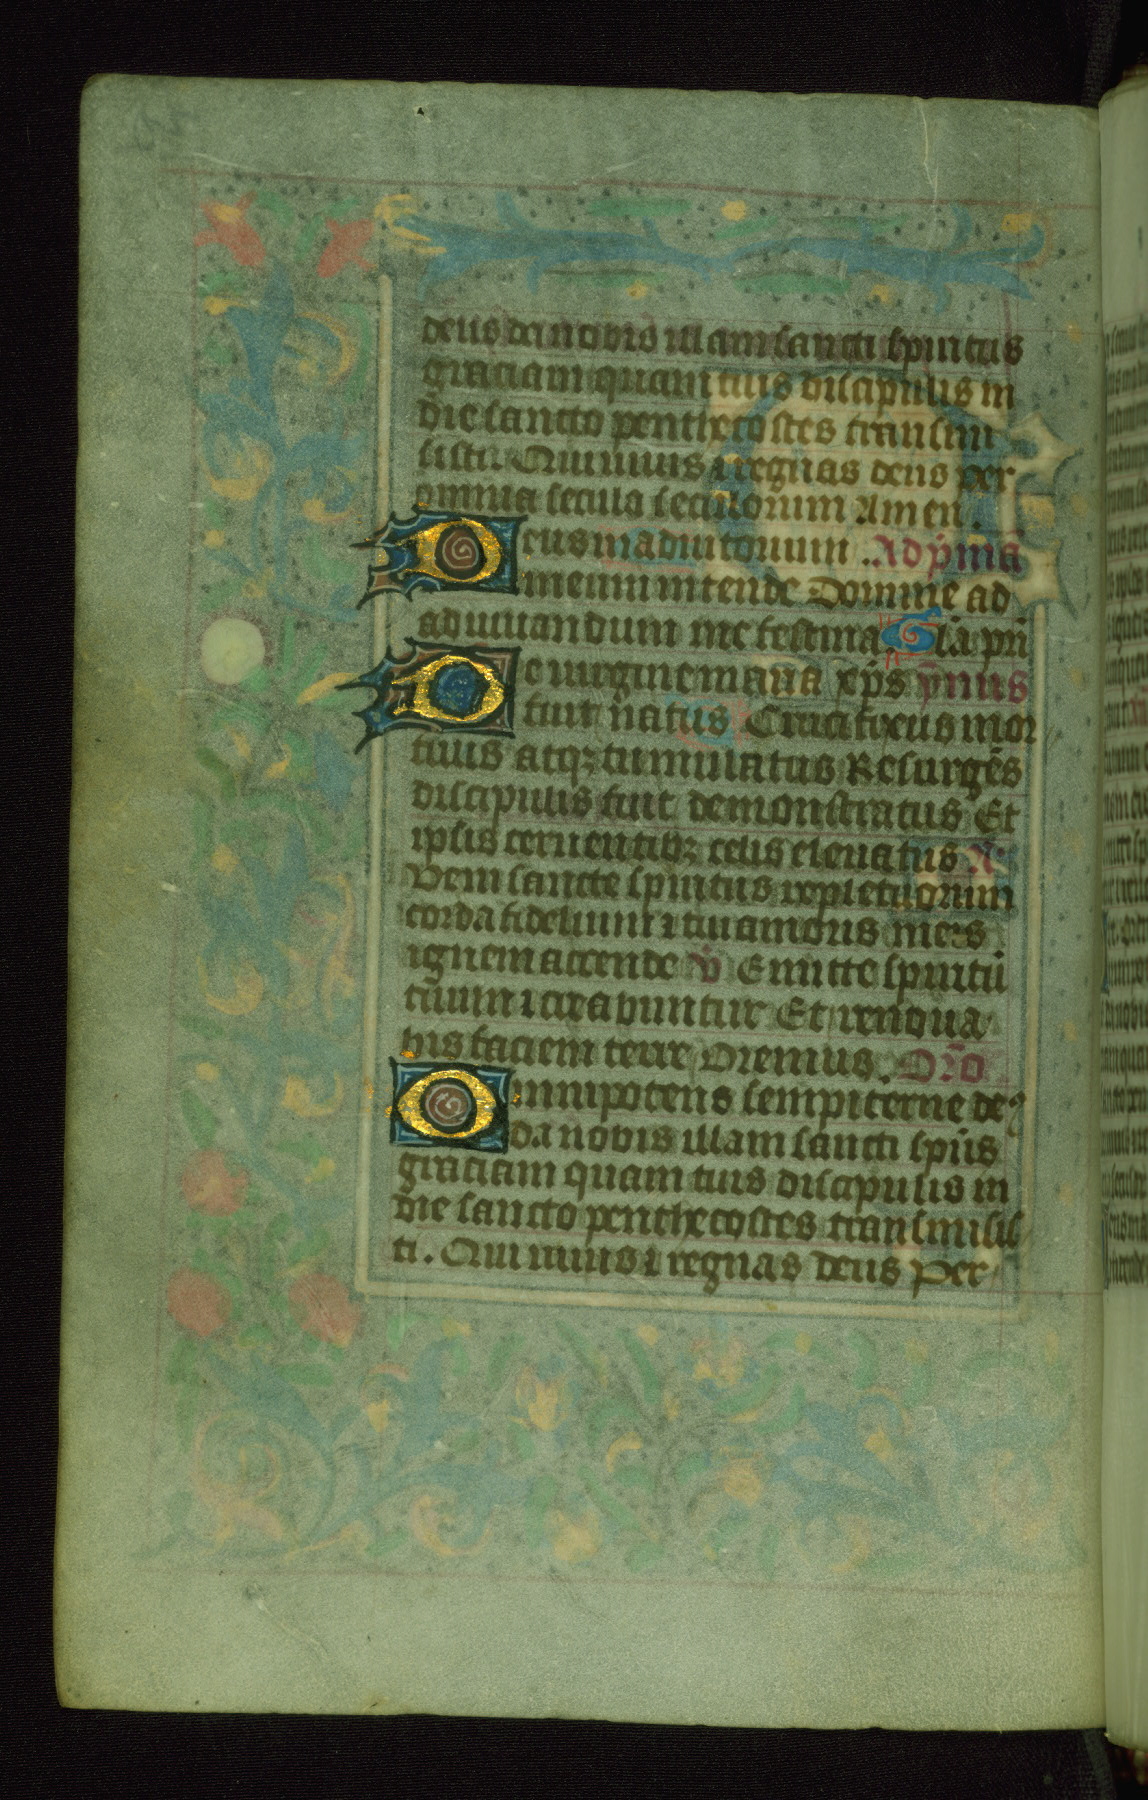 deus da nobis illam sancti spiritus
graciam quam tuis discipulis in
die sancto penthecostes transmi
sisti. Qui viuis ⁊ regnas deus per
omnia secula seculorum Amen.
Deus in adiutorium Ad p̾ma
meum intende Domine ad
adiuuandum me festina. Gl̄a pri
De virgine maria xp̄s ȳnus
fuit natus Crucifixus mor
tuus atqꝫ tumulatus Resurgēs
discipulis fuit demonstratus Et
ipsis cernentibꝫ celis eleuatus An̄
Veni sancte spiritus reple tuorum
corda fidelium ⁊ tui amoris in eis
ignem accende v̄ Emitte spiritū
tuum ⁊ creabuntur Et renoua
bis faciem terre Oremus. Or̄o
Omnipotens sempiterne deꝰ
da nobis illam sancti sp̄us
graciam quam tuis discipulis in
die sancto penthecostes transmisis
ti. Qui viuis ⁊ regnas deus per